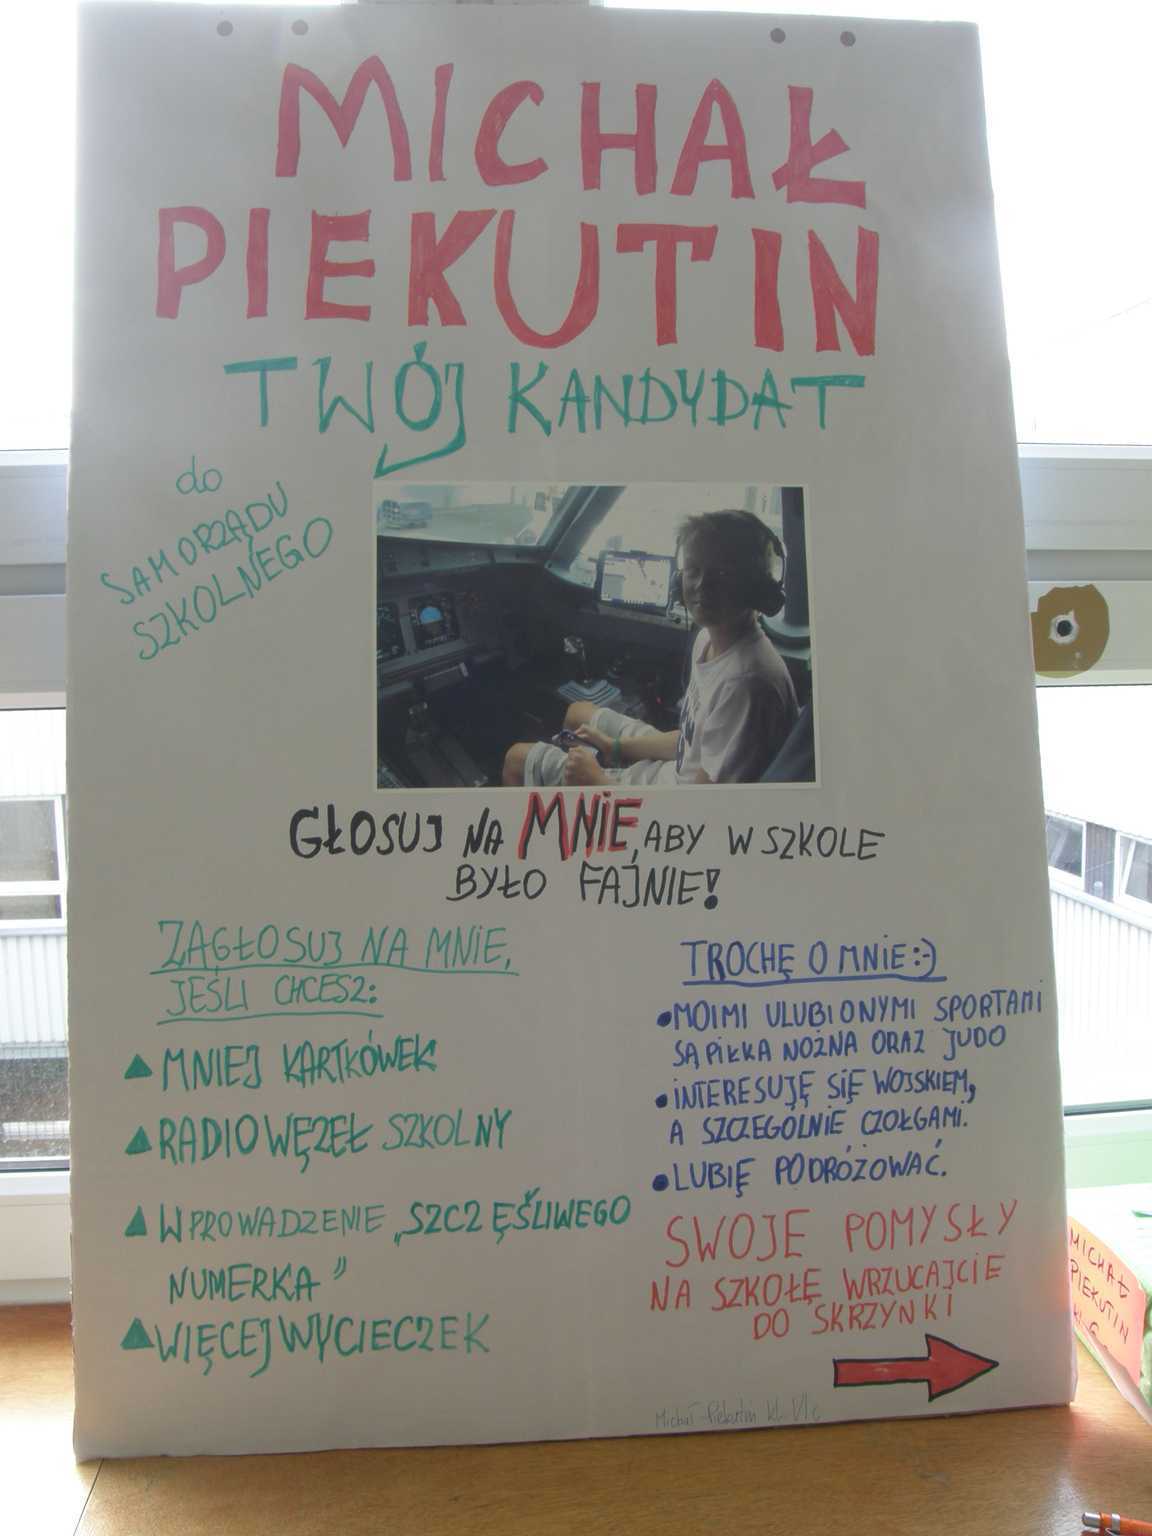 MICHAŁ
PIEKUTIN
TWÓJ KANDYDAT
do
SAMORZĄDU
SZKOLNEGO
GŁOSUJ NA MNIE, ABY W SZKOLE
BYŁO FAJNIE!
ZAGŁOSUJ NA MNIE,
JEŚLI CHCESZ:
MNIEJ KARTKÓWEK
RADIOWĘZEŁ SZKOLNY
WPROWADZENIE „SZCZĘŚLIWEGO
NUMERKA”
WIĘCEJ WYCIECZEK
TROCHĘ O MNIE :-)
• MOIMI ULUBIONYMI SPORTAMI
SĄ PIŁKA NOŻNA ORAZ JUDO
• INTERESUJĘ SIĘ WOJSKIEM,
A SZCZEGÓLNIE CZOŁGAMI.
• LUBIĘ PODRÓŻOWAĆ.
SWOJE POMYSŁY
NA SZKOŁĘ WRZUCAJCIE
DO SKRZYNKI
Michał Piekutin kl. VI c
MICHAŁ
PIEKUTIN